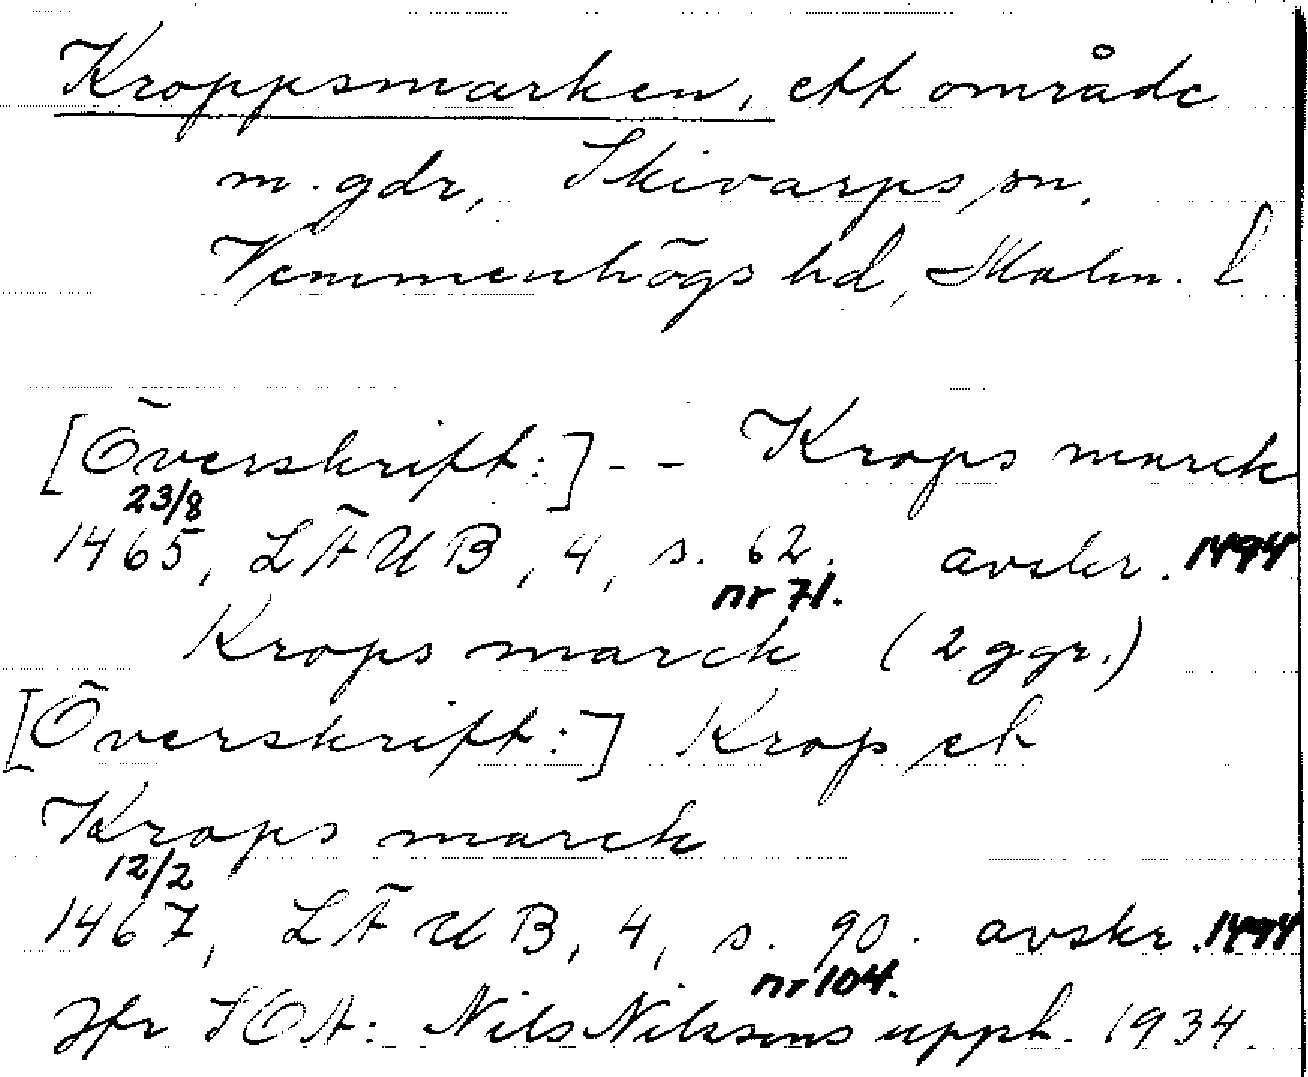 Kroppsmarken, ett område
m. gdr, Skivarps sn,
Vemmenhögs hd, Malm. l
[Överskrift:] - - Krops marck
23/8
1465, LÄUB, 4, s. 62. avskr. 1494
nr 71.
Krops marck (2 ggr.)
[Överskrift:] Krop ek
Krops marck
12/2
1467, LÄUB, 4, s. 90. avskr. 1494
nr 104.
Jfr SOA: Nils Nilssons uppt. 1934.